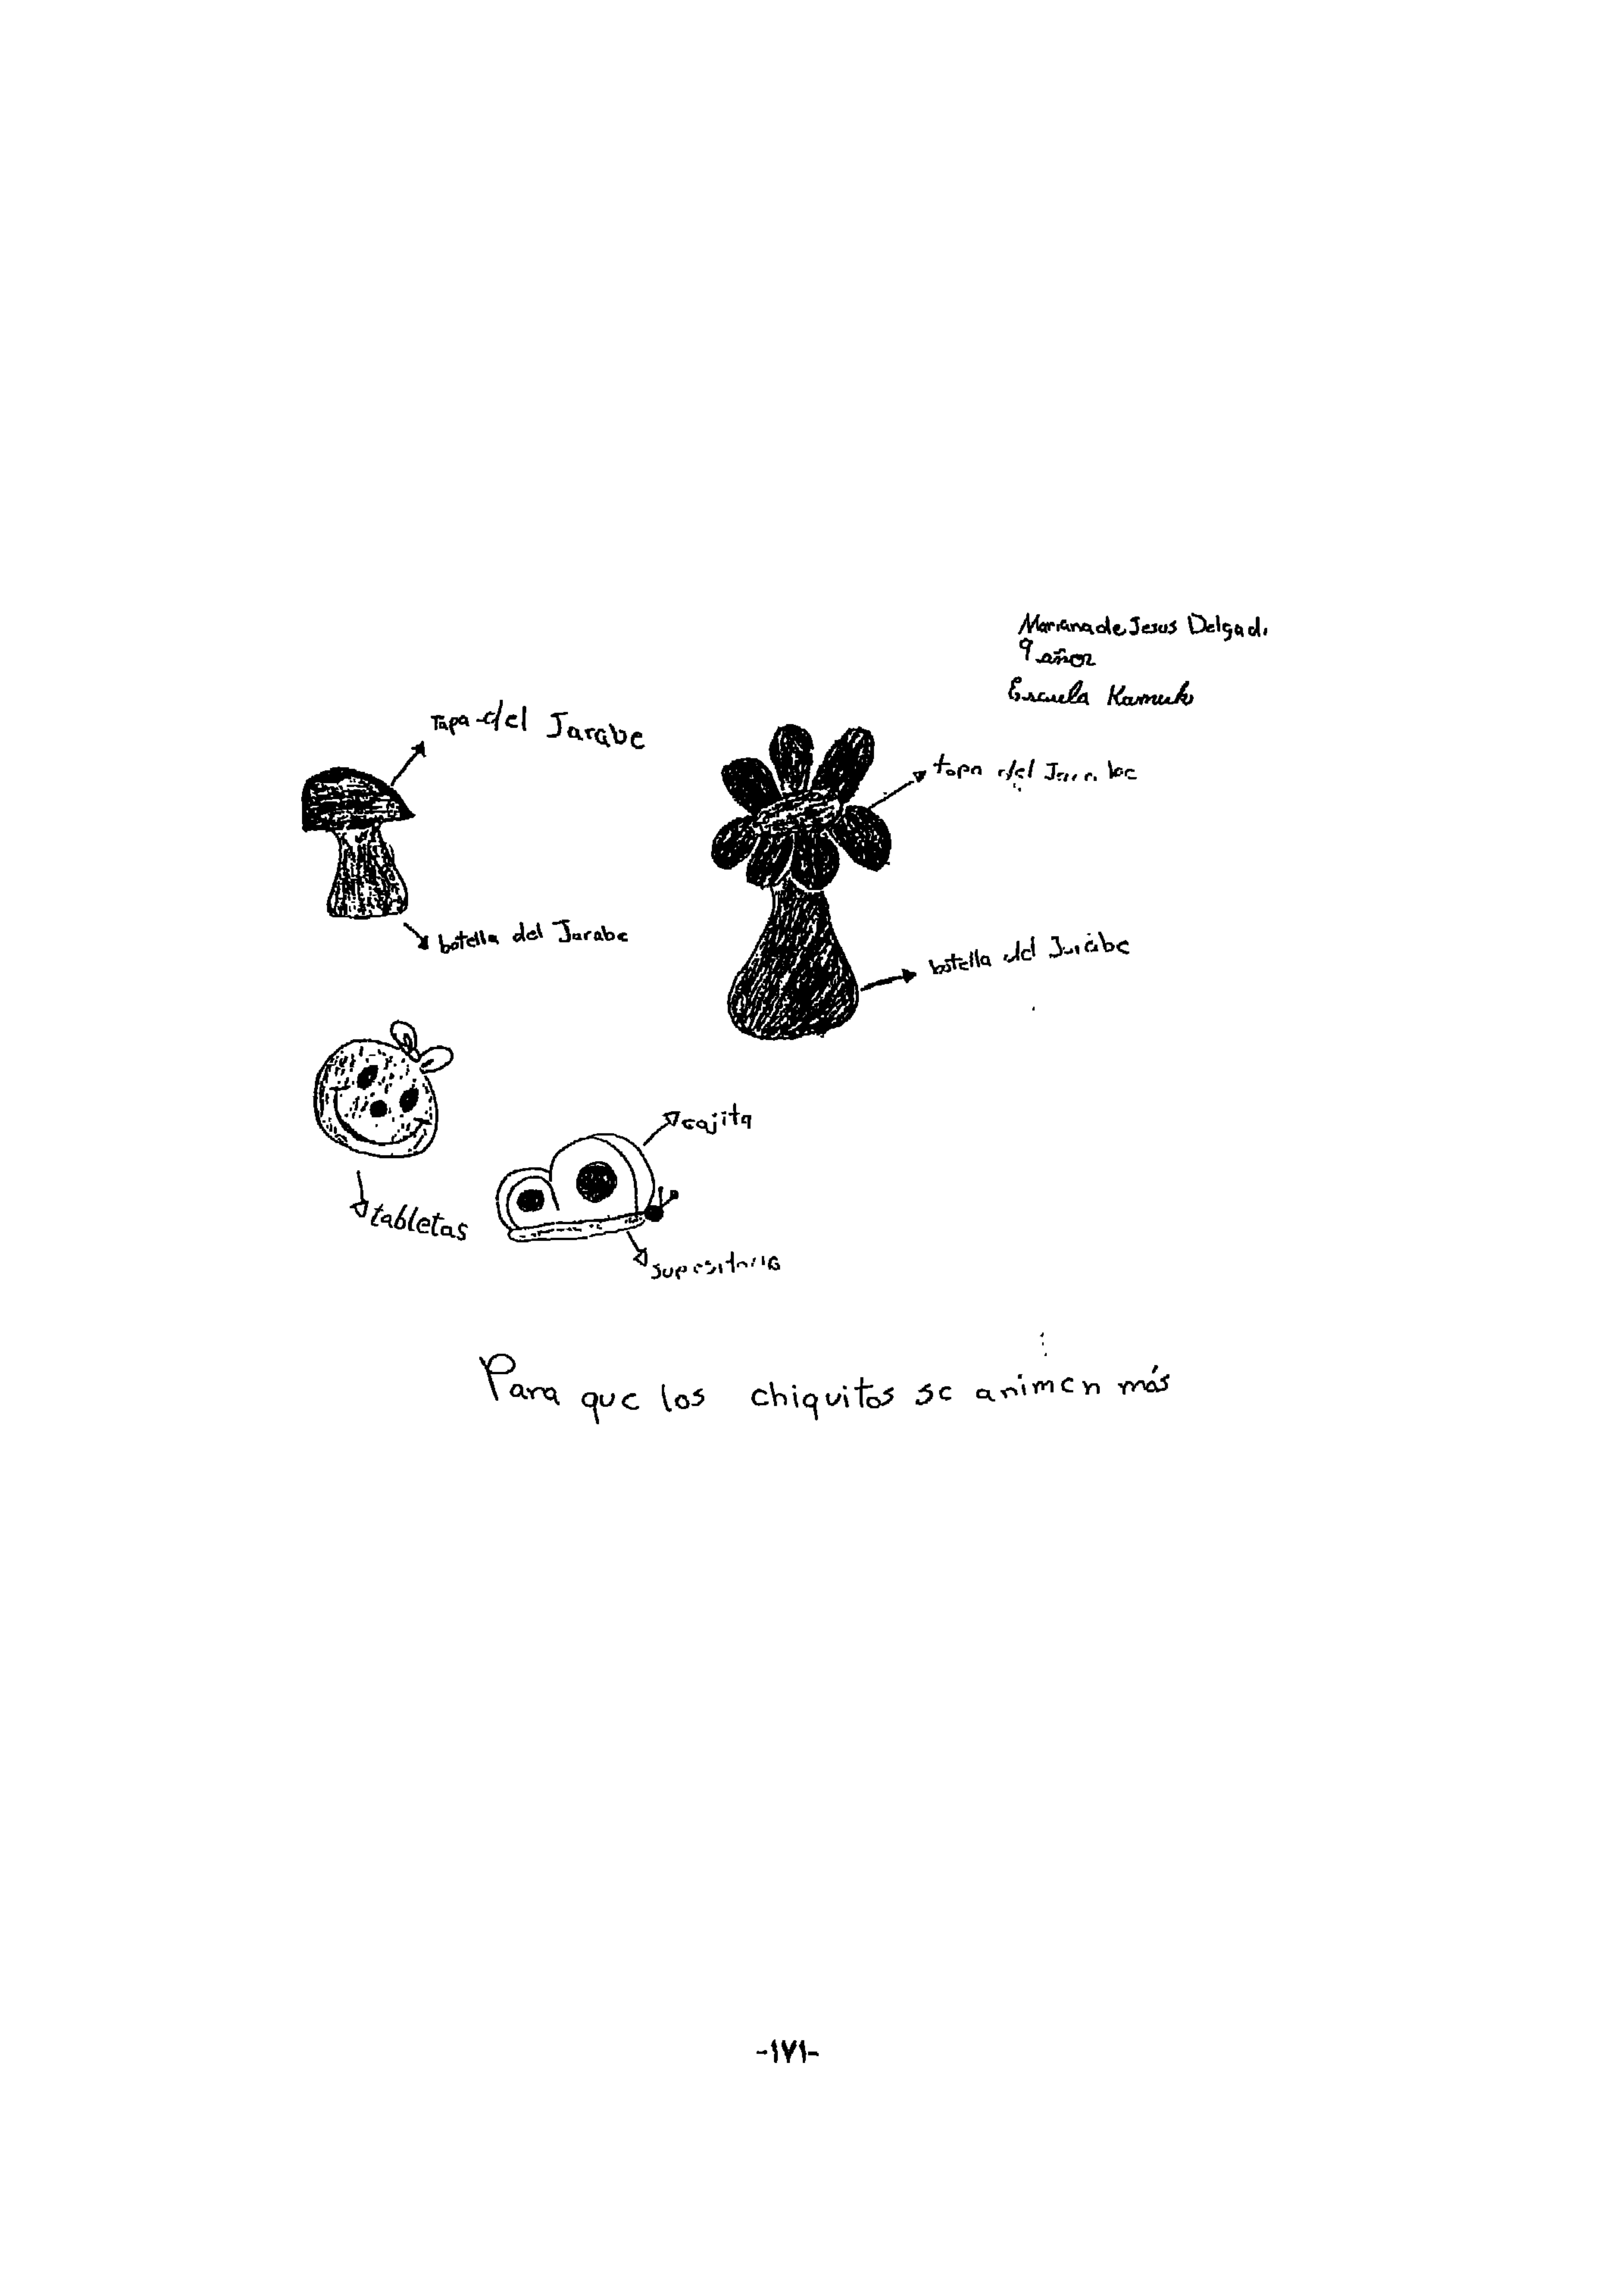 Mariana de Jesus Delgado
9 años
Escuela Kamuk
Tapa del Jarabe
tapa del Jarabe
botella del Jarabe
botella del Jarabe
cajita
tabletas
supositorio
Para que los chiquitos se animen más
-١٧١-